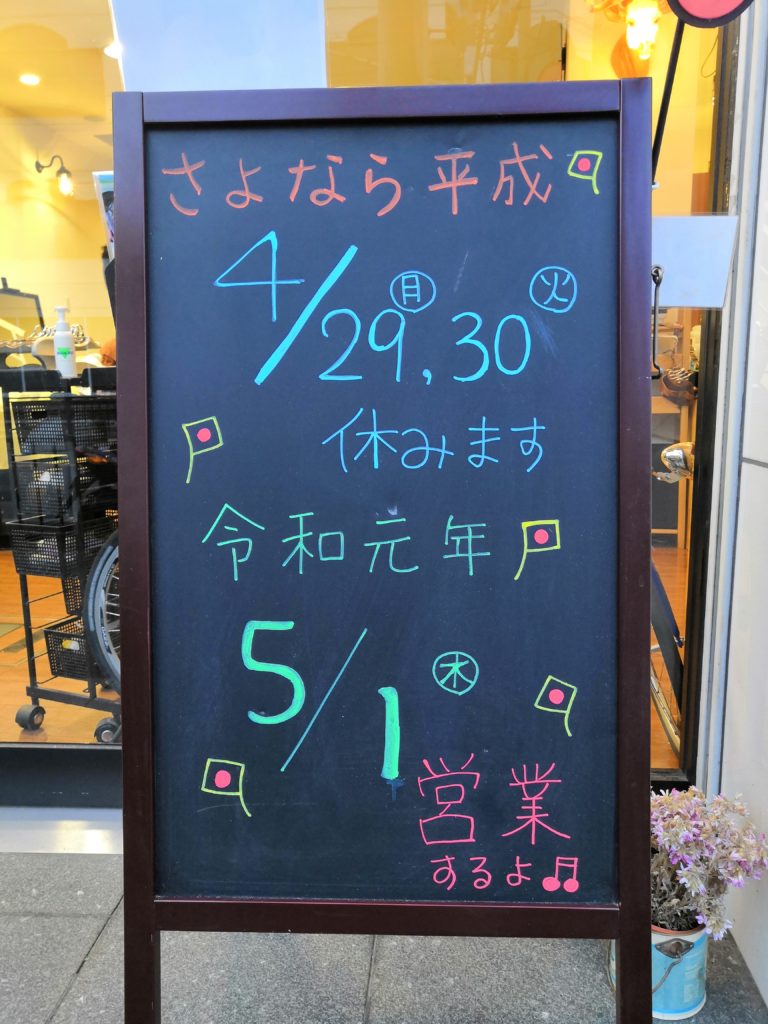 さよなら平成
4/29㊊,30㊋
休みます
令和元年
5/1㊍
営業
するよ♫